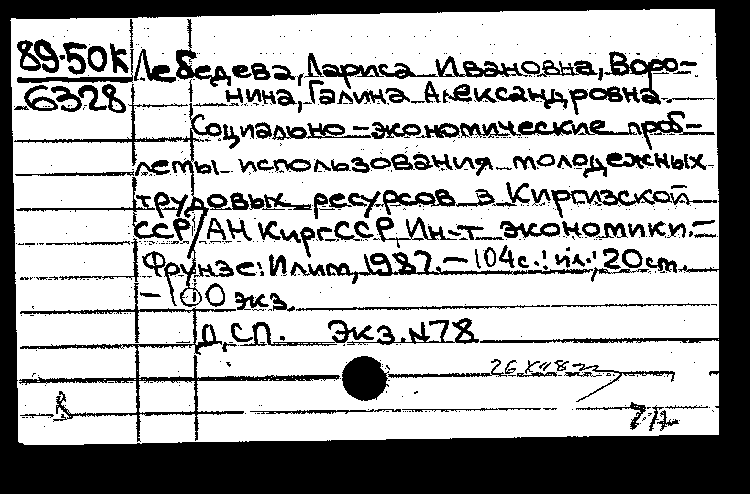 89-50К
6328
Лебедева, Лариса Ивановна, Воро-
нина, Галина Александровна.
Социально-экономические проб-
лемы использования молодежных
трудовых ресурсов в Киргизской
ССР/АН КиргССР, Ин-т экономики.-
Фрунзе: Илим, 1987.-104с.: ил.; 20ст.
-100 экз.
Д.СП. Экз.N78